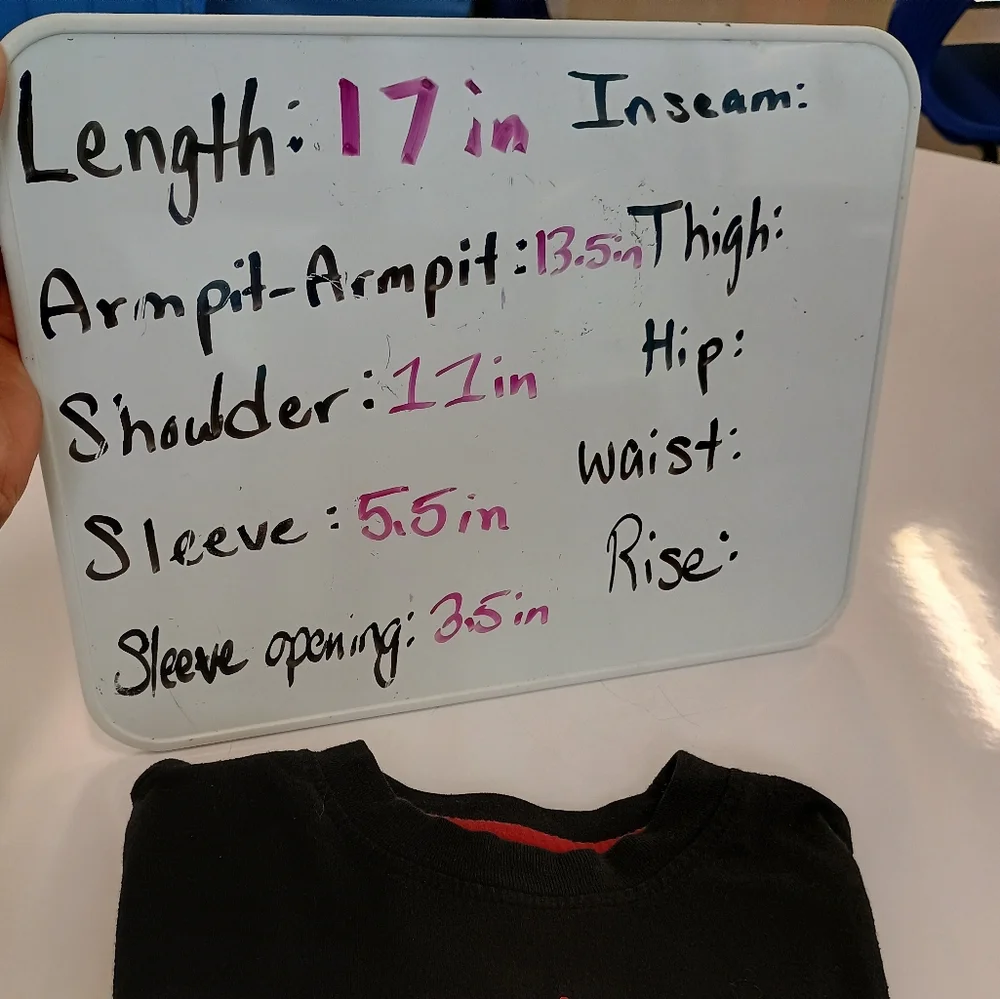 Length: 17 in
Armpit-Armpit: 13.5in
Shoulder: 11in
Sleeve: 5.5in
Sleeve opening: 3.5in
Inseam:
Thigh:
Hip:
waist:
Rise: